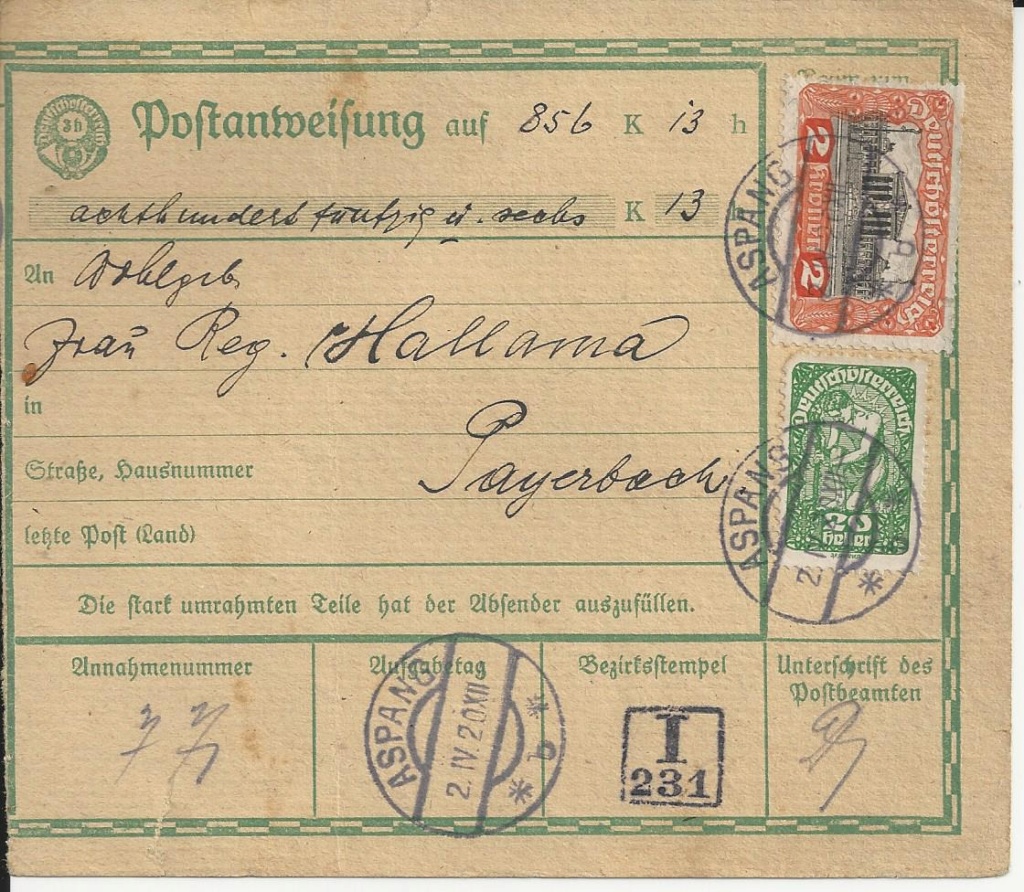 3h
Postanweisung auf 856 K 13 h
achthundert fünfzig u. sechs K 13
An Wohlgeb
Frau Reg. Hallama
in
Payerbach
Straße, Hausnummer
letzte Post (Land)
Die stark umrahmten Teile hat der Absender auszufüllen.
Deutschösterreich
2 Kronen 2
ASPANG
Deutschösterreich
20 Heller
ASPANG
Annahmenummer
Aufgabetag
Bezirksstempel
Unterschrift des
Postbeamten
77
ASPANG
2.IV.20XII
a
I
231